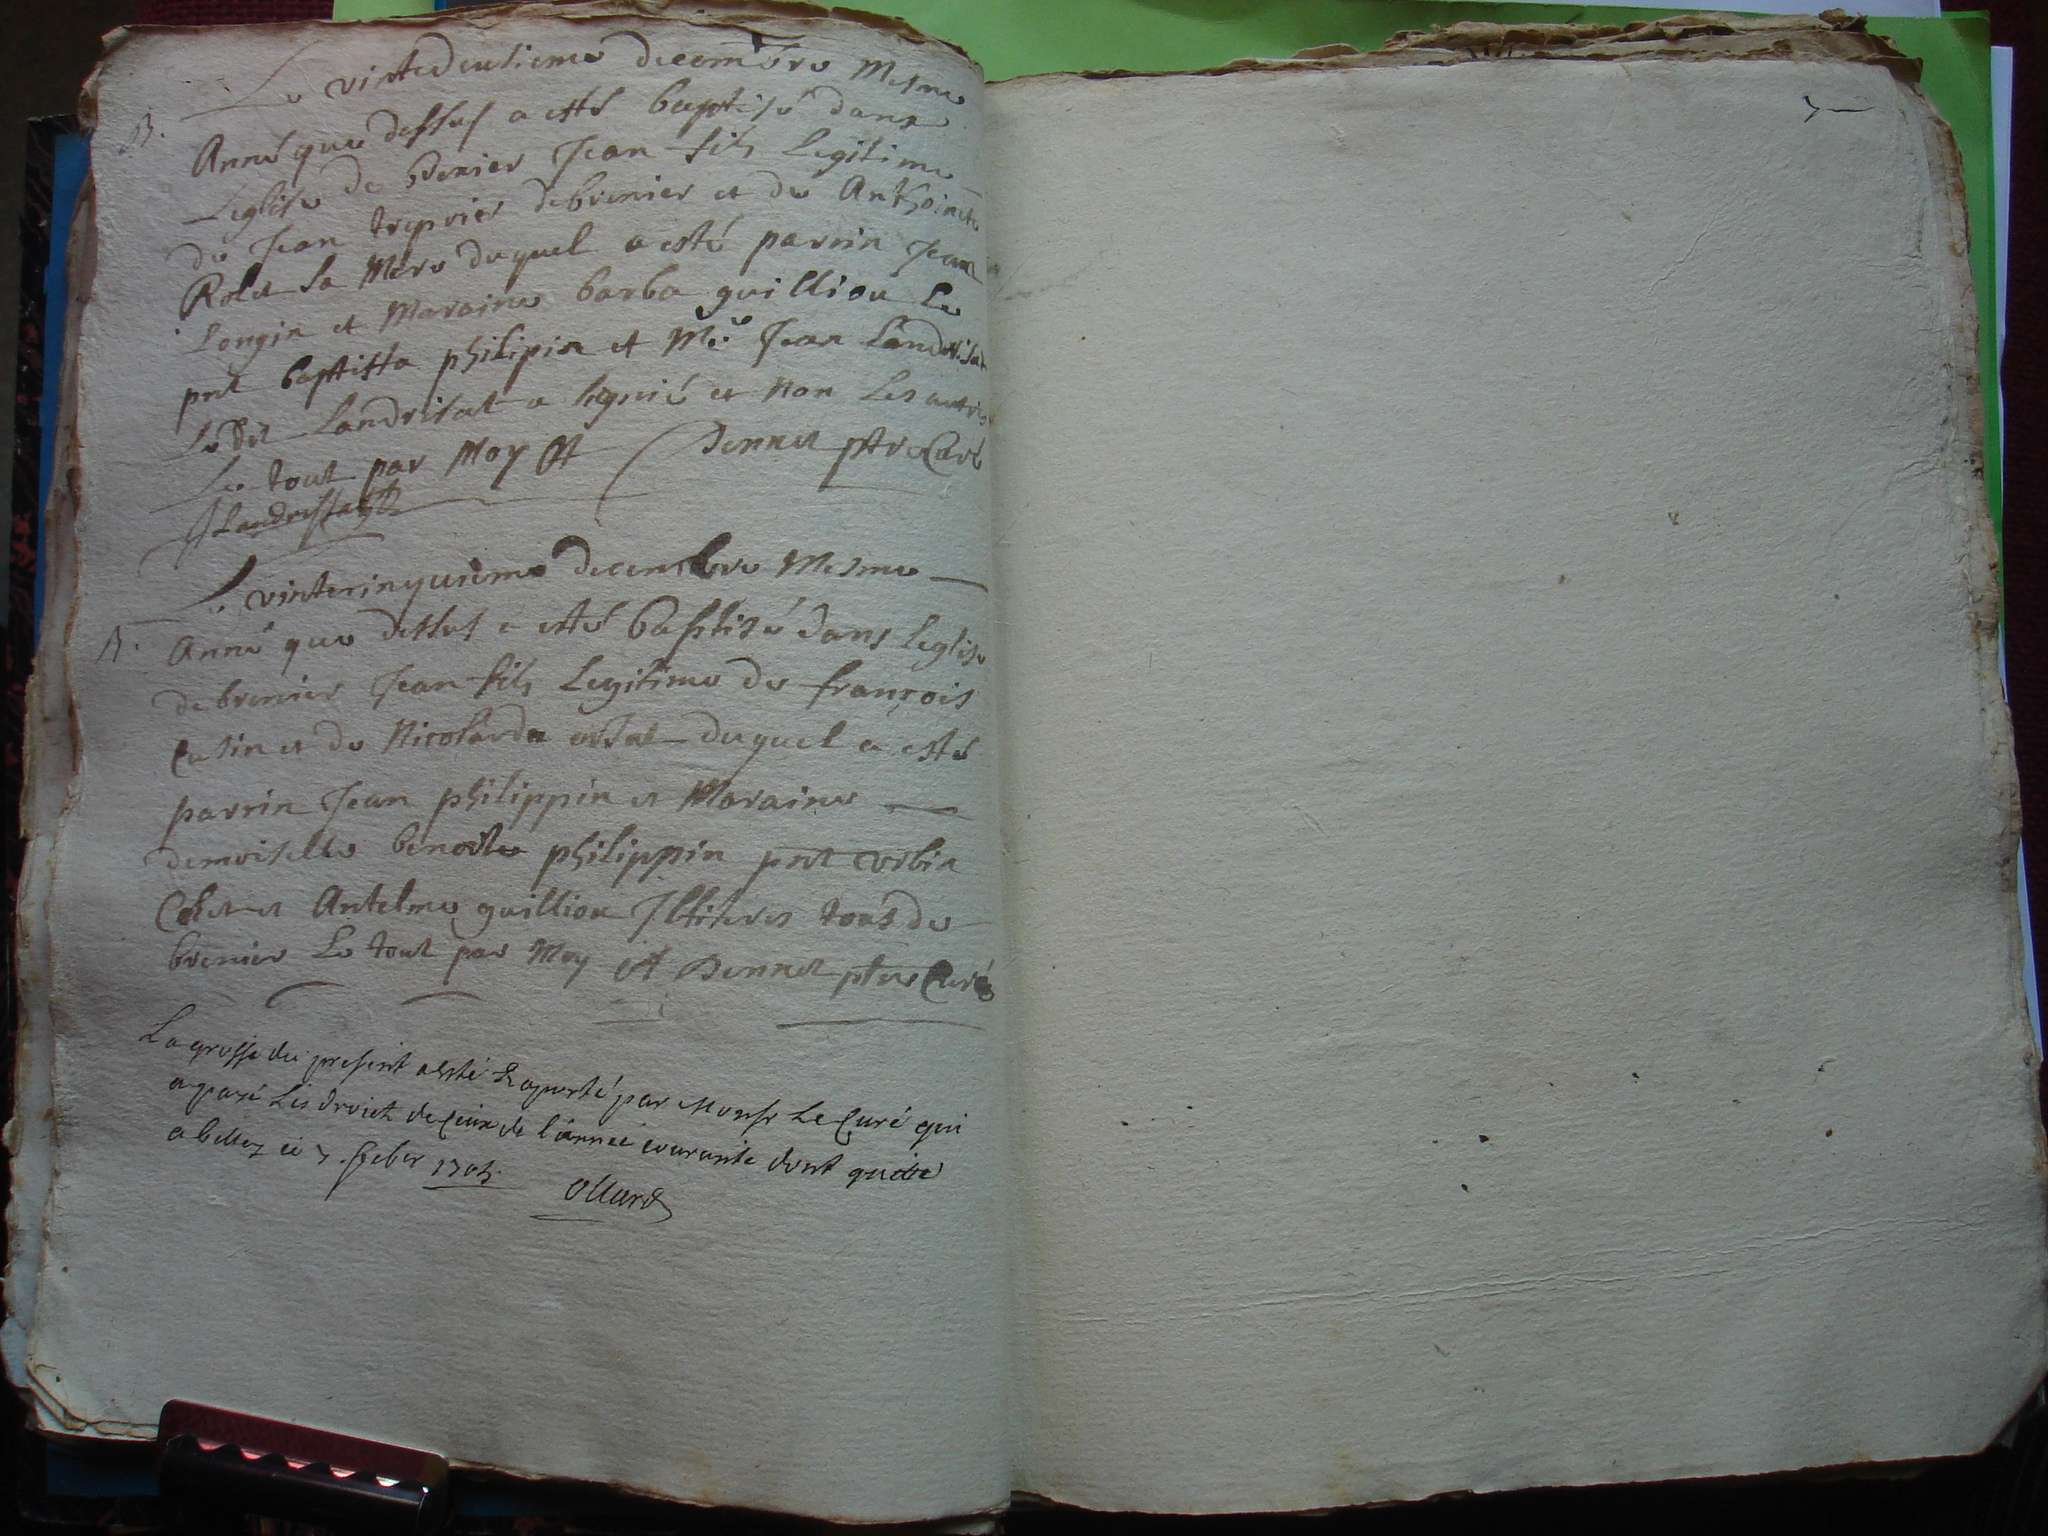 Le vintedeusieme decembre mesme
B. Anné que dessus a esté baptisé dans
Leglise de brenier Jean fils Legitime
de Jean trepvier debrenier et de Anthoinete
Rolet sa Mere duquel a esté parrin Jean
Longin et Maraine barba guilliou le
pnt baptista philipin et Me Jean Landrisat
Ledit Landrisat a signié et Non Les autres
Le tout par Moy Dennet ptre Curé
Landrisat
Le vintecinquiéme decembre Mesme
B. Anné que dessus a esté baptisé dans leglise
debrenier Jean fils Legitime de françois
Cusin et de Nicolarda duquel a esté
parrin Jean philippin et Maraine
demoiselle benoite philippin pnt vrbin
et Antelme guilliou Illiteres tous de
brenier Le tout par Moy Dennet ptre Curé
La grosse du present a esté Raporté par Monsr Le Curé qui
a payé Les droict de Ceux de l'année courante dont quitté
a belley ce 7. feber 1705.
Ollard
7